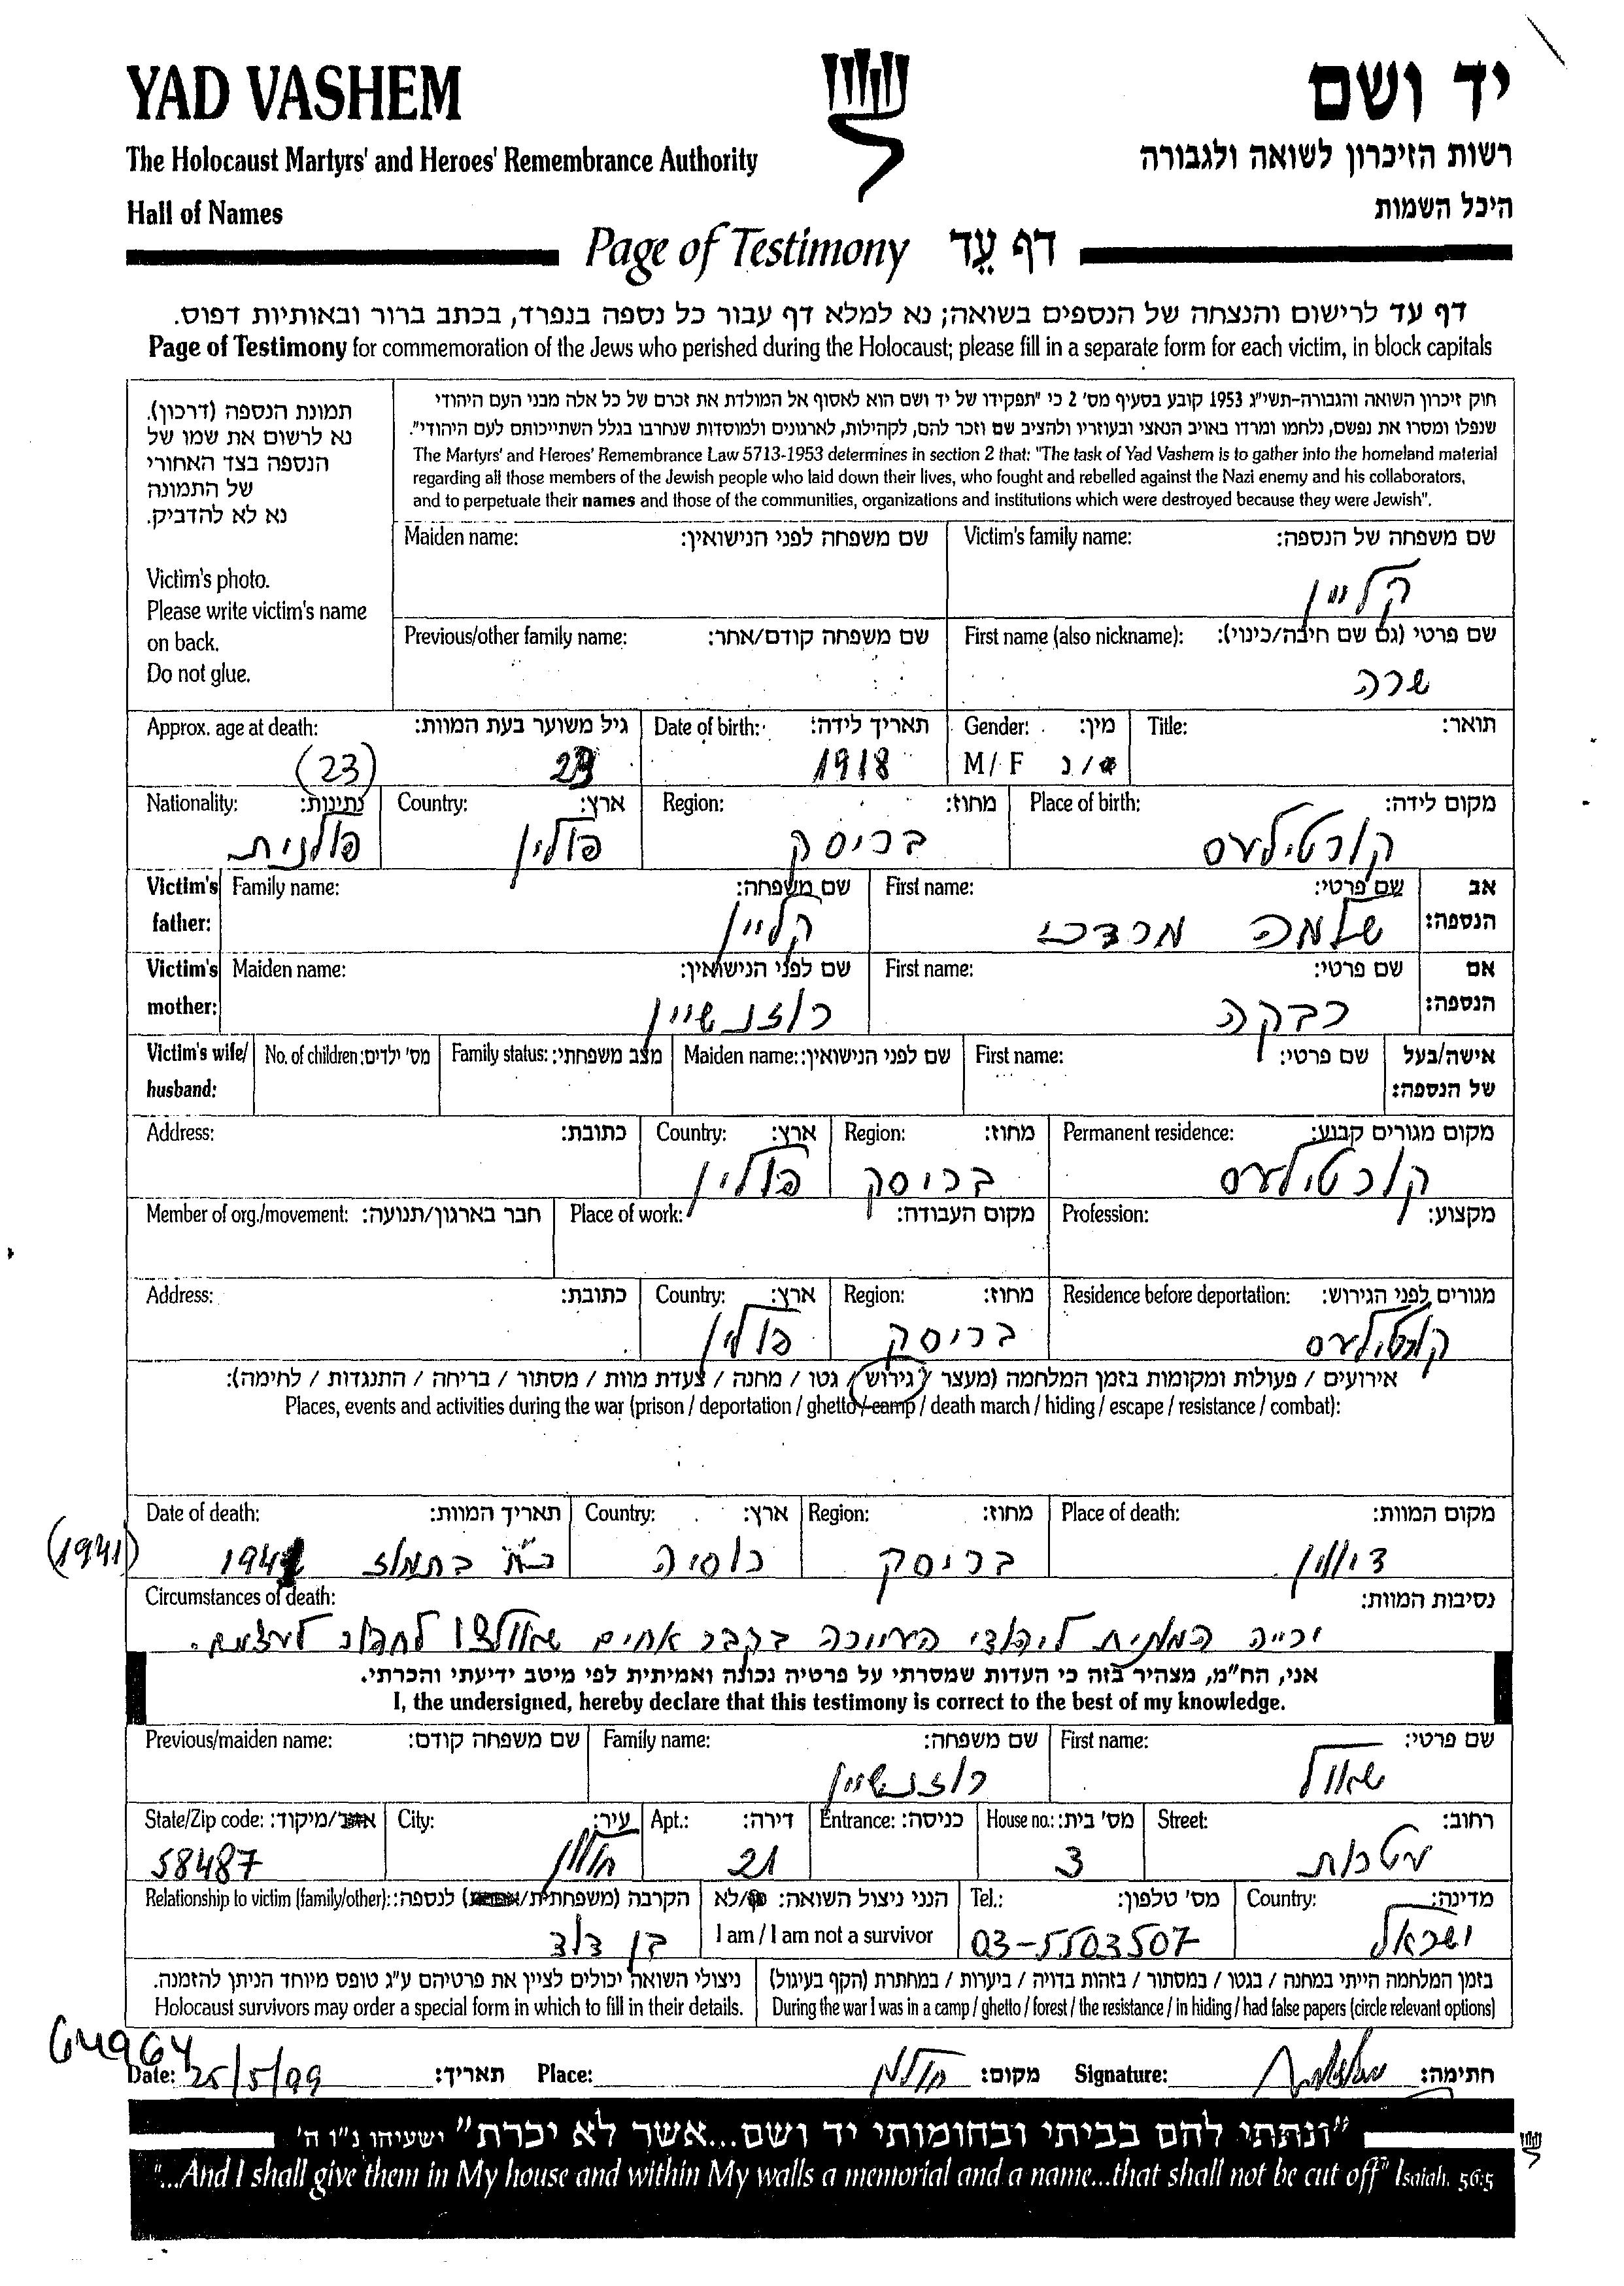 YAD VASHEM
יד ושם
The Holocaust Martyrs' and Heroes' Remembrance Authority
רשות הזיכרון לשואה ולגבורה
Hall of Names
היכל השמות
Page of Testimony דף עֵד
דף עד לרישום והנצחה של הנספים בשואה; נא למלא דף עבור כל נספה בנפרד, בכתב ברור ובאותיות דפוס.
Page of Testimony for commemoration of the Jews who perished during the Holocaust; please fill in a separate form for each victim, in block capitals
תמונת הנספה (דרכון).
נא לרשום את שמו של
הנספה בצד האחורי
של התמונה
נא לא להדביק.
Victim's photo.
Please write victim's name
on back.
Do not glue.
חוק זיכרון השואה והגבורה-תשי"ג 1953 קובע בסעיף מס' 2 כי "תפקידו של יד ושם הוא לאסוף אל המולדת את זכרם של כל אלה מבני העם היהודי
שנפלו ומסרו את נפשם, נלחמו ומרדו באויב הנאצי ובעוזריו ולהציב שם וזכר להם, לקהילות, לארגונים ולמוסדות שנחרבו בגלל השתייכותם לעם היהודי".
The Martyrs' and Heroes' Remembrance Law 5713-1953 determines in section 2 that: "The task of Yad Vashem is to gather into the homeland material
regarding all those members of the Jewish people who laid down their lives, who fought and rebelled against the Nazi enemy and his collaborators,
and to perpetuate their names and those of the communities, organizations and institutions which were destroyed because they were Jewish".
Maiden name: שם משפחה לפני הנישואין: Victim's family name: שם משפחה של הנספה:
קליין
Previous/other family name: שם משפחה קודם/אחר: First name (also nickname): שם פרטי (גם שם חיבה/כינוי):
שרה
Approx. age at death: גיל משוער בעת המוות: Date of birth: תאריך לידה: Gender: מין: Title: תואר:
(23) 23 1918 M/F ז/נ
Nationality: נתינות: Country: ארץ: Region: מחוז: Place of birth: מקום לידה:
פולנית פולין בריסק קורטילעס
Victim's father: Family name: שם משפחה: First name: שם פרטי: אב הנספה:
קליין שלמה מרדכי
Victim's mother: Maiden name: שם לפני הנישואין: First name: שם פרטי: אם הנספה:
רוזנשיין רבקה
Victim's wife/ husband: No. of children: מס' ילדים: Family status: מצב משפחתי: Maiden name: שם לפני הנישואין: First name: שם פרטי: אישה/בעל של הנספה:
Address: כתובת: Country: ארץ: Region: מחוז: Permanent residence: מקום מגורים קבוע:
פולין בריסק קורטילעס
Member of org./movement: חבר בארגון/תנועה: Place of work: מקום העבודה: Profession: מקצוע:
Address: כתובת: Country: ארץ: Region: מחוז: Residence before deportation: מגורים לפני הגירוש:
פולין בריסק קורטילעס
אירועים / פעולות ומקומות בזמן המלחמה (מעצר / גירוש / גטו / מחנה / צעדת מוות / מסתור / בריחה / התנגדות / לחימה):
Places, events and activities during the war (prison / deportation / ghetto / camp / death march / hiding / escape / resistance / combat):
Date of death: תאריך המוות: Country: ארץ: Region: מחוז: Place of death: מקום המוות:
(1941) 1941 בתמוז רוסיה בריסק דיווין
Circumstances of death: נסיבות המוות:
ירייה המונית ליהודי העיירה בקבר אחים שאולצו לחפור לעצמם.
אני, הח"מ, מצהיר בזה כי העדות שמסרתי על פרטיה נכונה ואמיתית לפי מיטב ידיעתי והכרתי.
I, the undersigned, hereby declare that this testimony is correct to the best of my knowledge.
Previous/maiden name: שם משפחה קודם: Family name: שם משפחה: First name: שם פרטי:
רוזנשיין שאול
State/Zip code: אזור/מיקוד: City: עיר: Apt.: דירה: Entrance: כניסה: House no.: מס' בית: Street: רחוב:
58487 חולון 21 3
Relationship to victim (family/other): הקרבה (משפחתית/אחרת) לנספה: הנני ניצול השואה: כן/לא Tel.: מס' טלפון: Country: מדינה:
בן דוד I am / I am not a survivor 03-5503507 ישראל
ניצולי השואה יכולים לציין את פרטיהם ע"ג טופס מיוחד הניתן להזמנה. בזמן המלחמה הייתי במחנה / בגטו / במסתור / בזהות בדויה / ביערות / במחתרת (הקף בעיגול)
Holocaust survivors may order a special form in which to fill in their details. During the war I was in a camp / ghetto / forest / the resistance / in hiding / had false papers (circle relevant options)
Date: 25/5/99 תאריך: Place: חולון מקום: Signature: חתימה:
"ונתתי להם בביתי ובחומותי יד ושם...אשר לא יכרת" ישעיהו נ"ו ה'
"...And I shall give them in My house and within My walls a memorial and a name...that shall not be cut off" Isaiah, 56:5